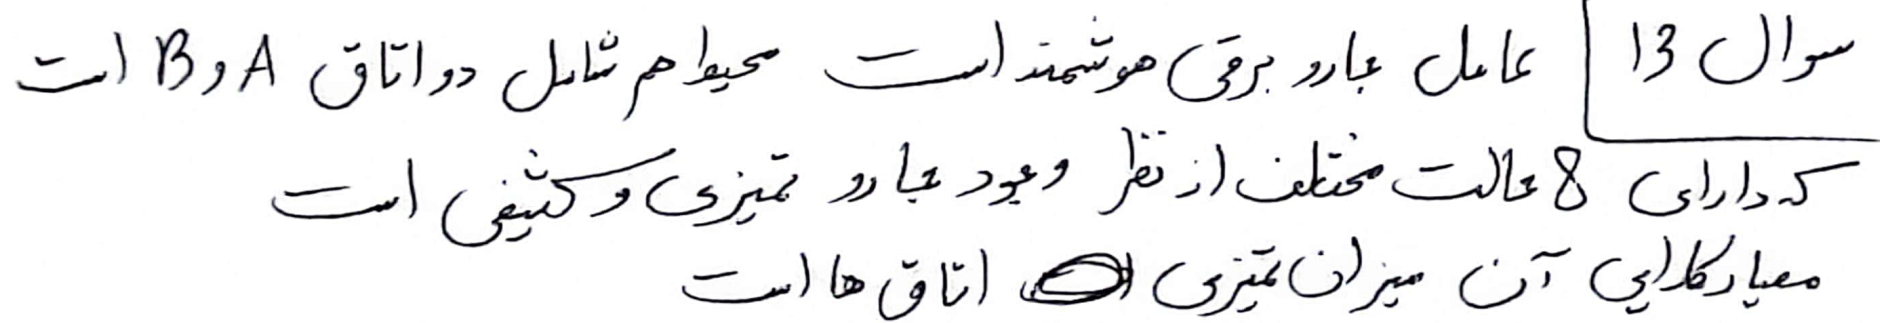 سوال 13 عامل جارو برقی هوشمند است محیط هم شامل دو اتاق A و B است
که دارای 8 حالت مختلف از نظر وجود جارو تمیزی و کثیفی است
معیار کارایی آن میزان تمیزی اتاق ها است